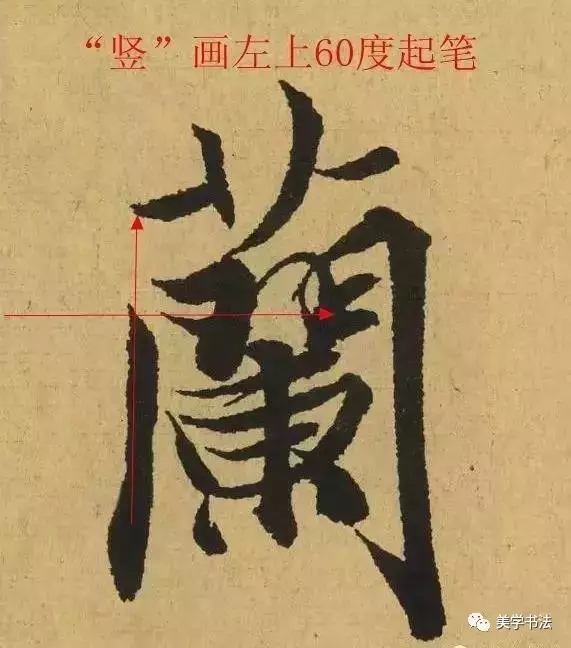 “竖”画左上60度起笔
蘭
美学书法